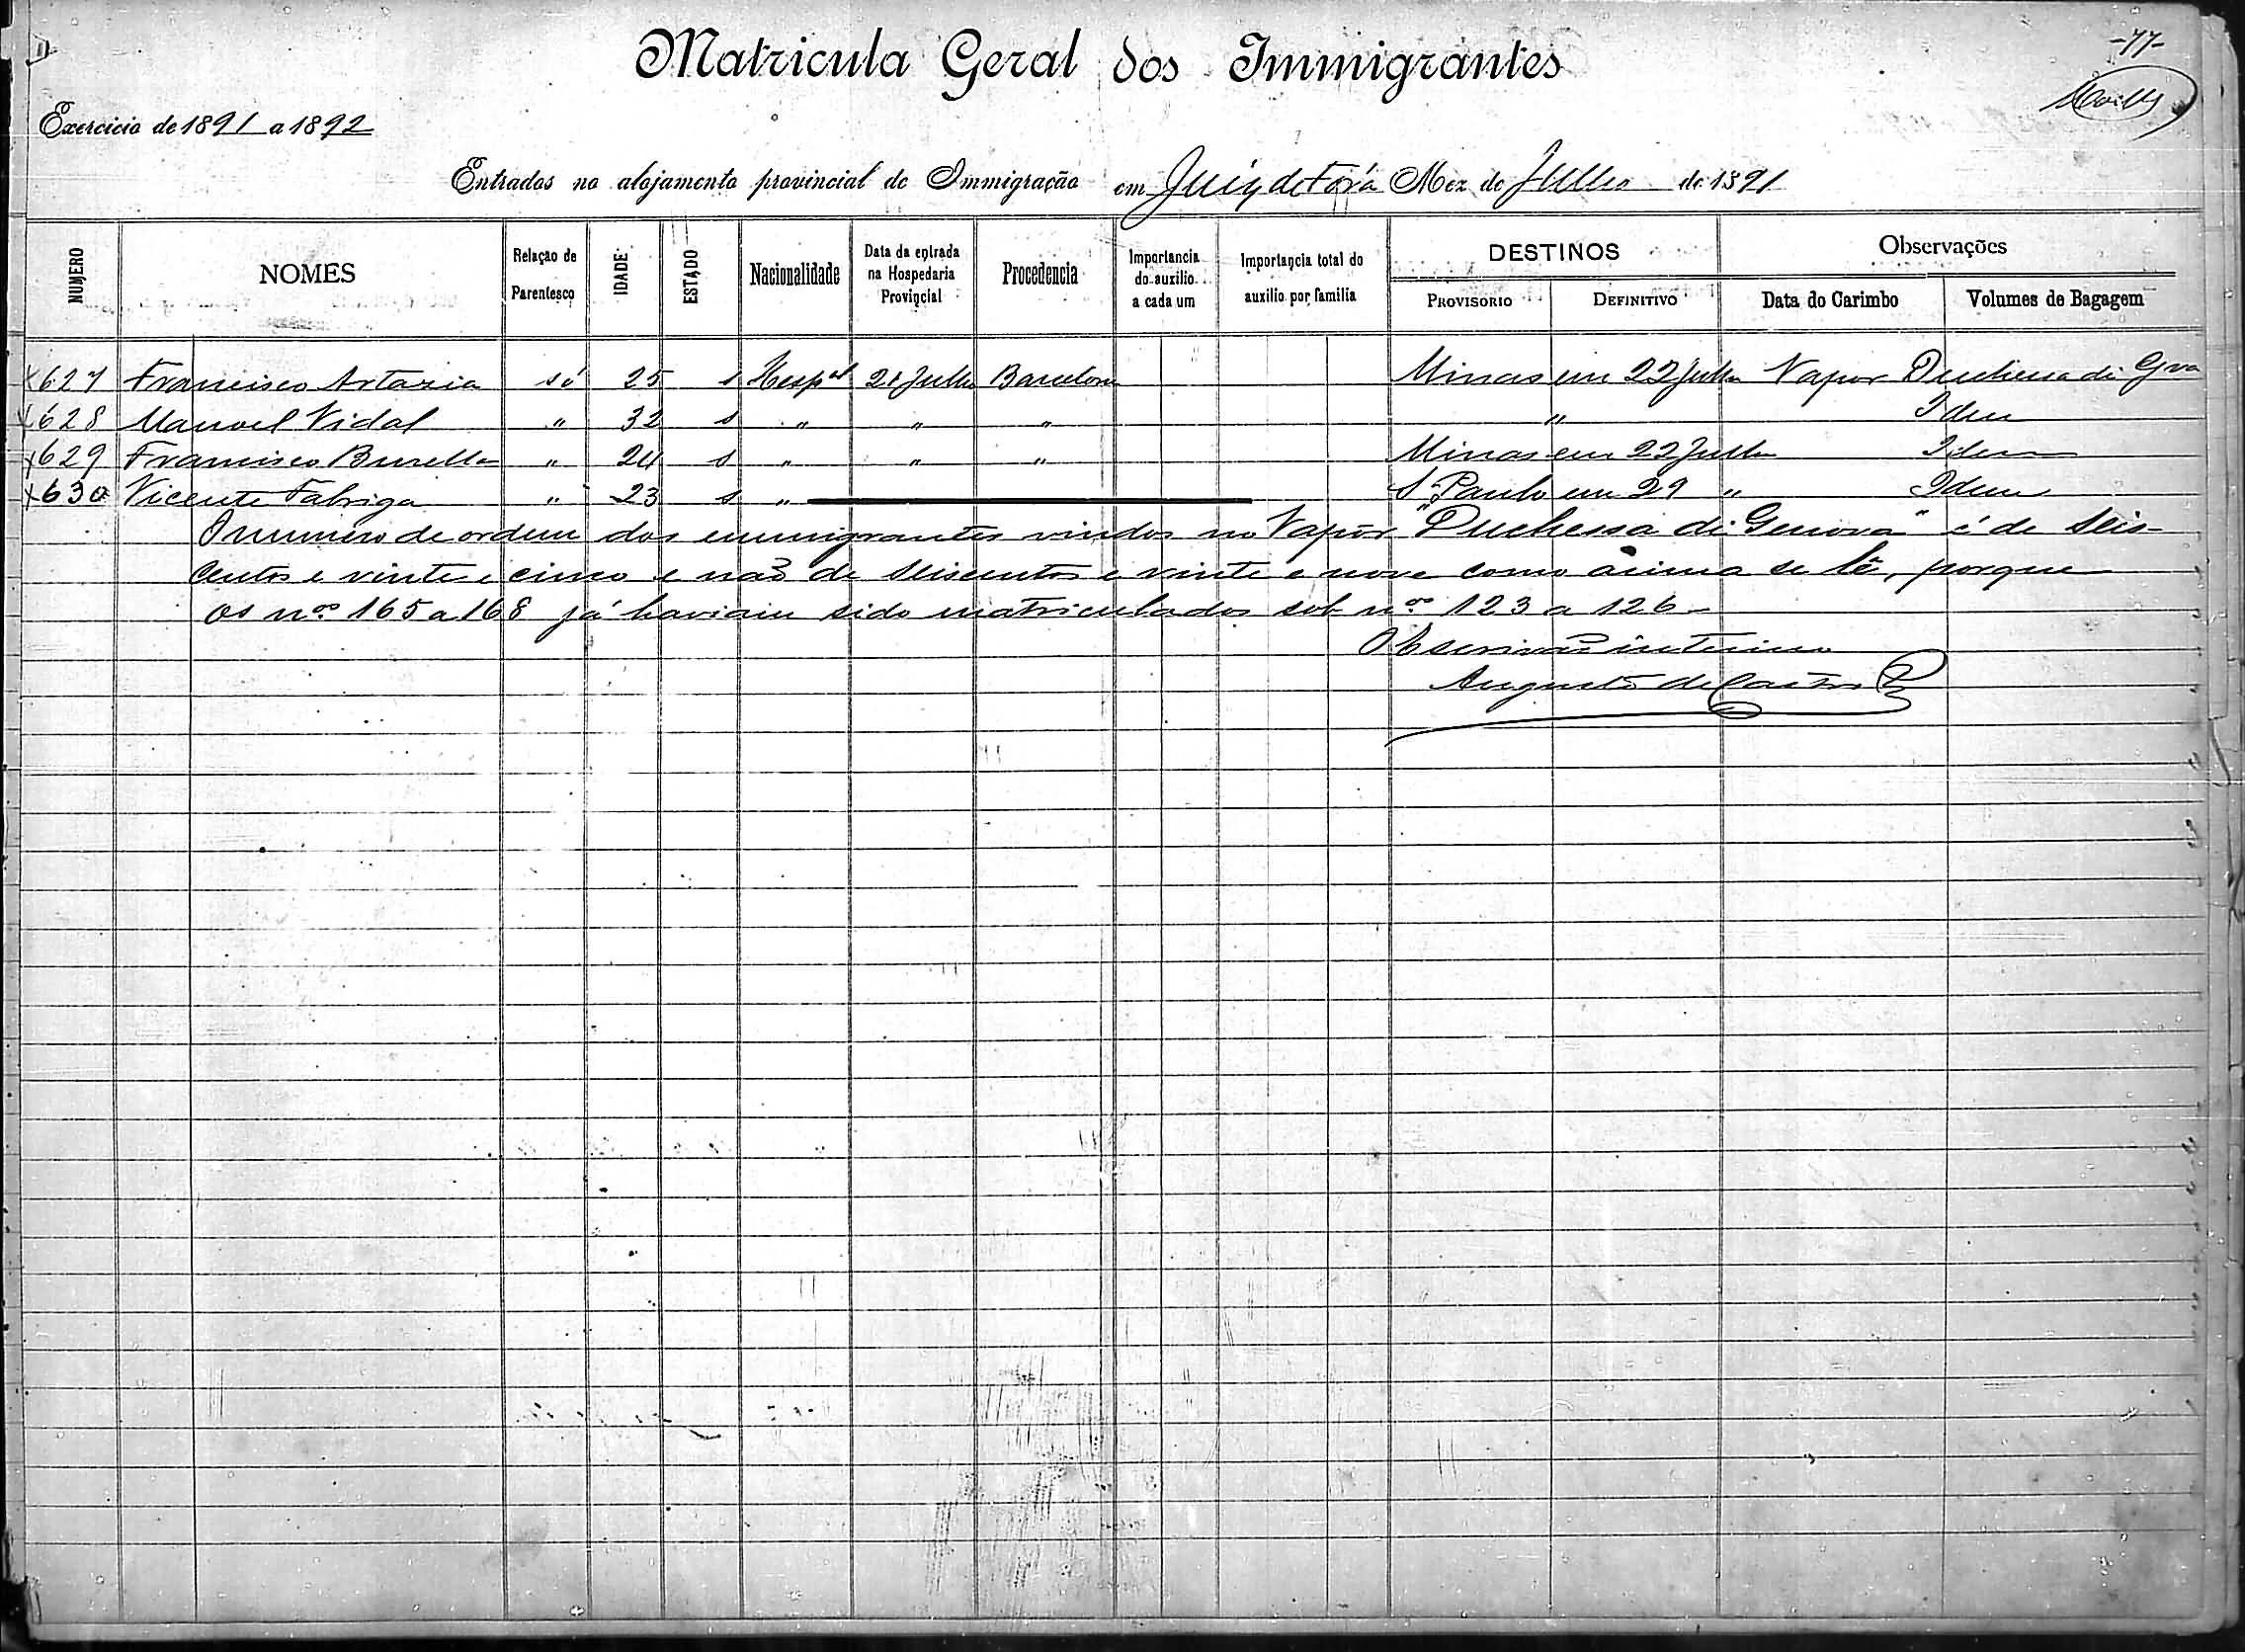 -77-
Matricula Geral dos Immigrantes
Exercicio de 1891 a 1892
Entradas no alojamento provincial de Immigração em Juiz de Fóra Mez de Julho de 1891
NUMERO NOMES Relação de Parentesco IDADE ESTADO Nacionalidade Data da entrada na Hospedaria Provincial Procedencia Importancia do auxilio a cada um Importancia total do auxilio por familia DESTINOS PROVISORIO DEFINITIVO Observações Data do Carimbo Volumes de Bagagem
x 627 Francisco Artazia só 25 s Hespal 21 Julho Barcelona Minas em 22 Julho Vapor Duchessa di Gva
x 628 Manoel Vidal " 32 s " " " " Idem
x 629 Francisco Burella " 24 s " " " Minas em 22 Julho Idem
x 630 Vicente Fabriga " 23 s " S. Paulo em 29 " Idem
O numero de ordem dos emmigrantes vindos no Vapor "Duchessa di Genova" é de Seis-
centos e vinte e cinco e não de Seiscentos e vinte e nove como acima se lê, porque
os nos 165 a 168 já haviam sido matriculados sob nos 123 a 126 -
O Escrivão interino
Augusto de Castro